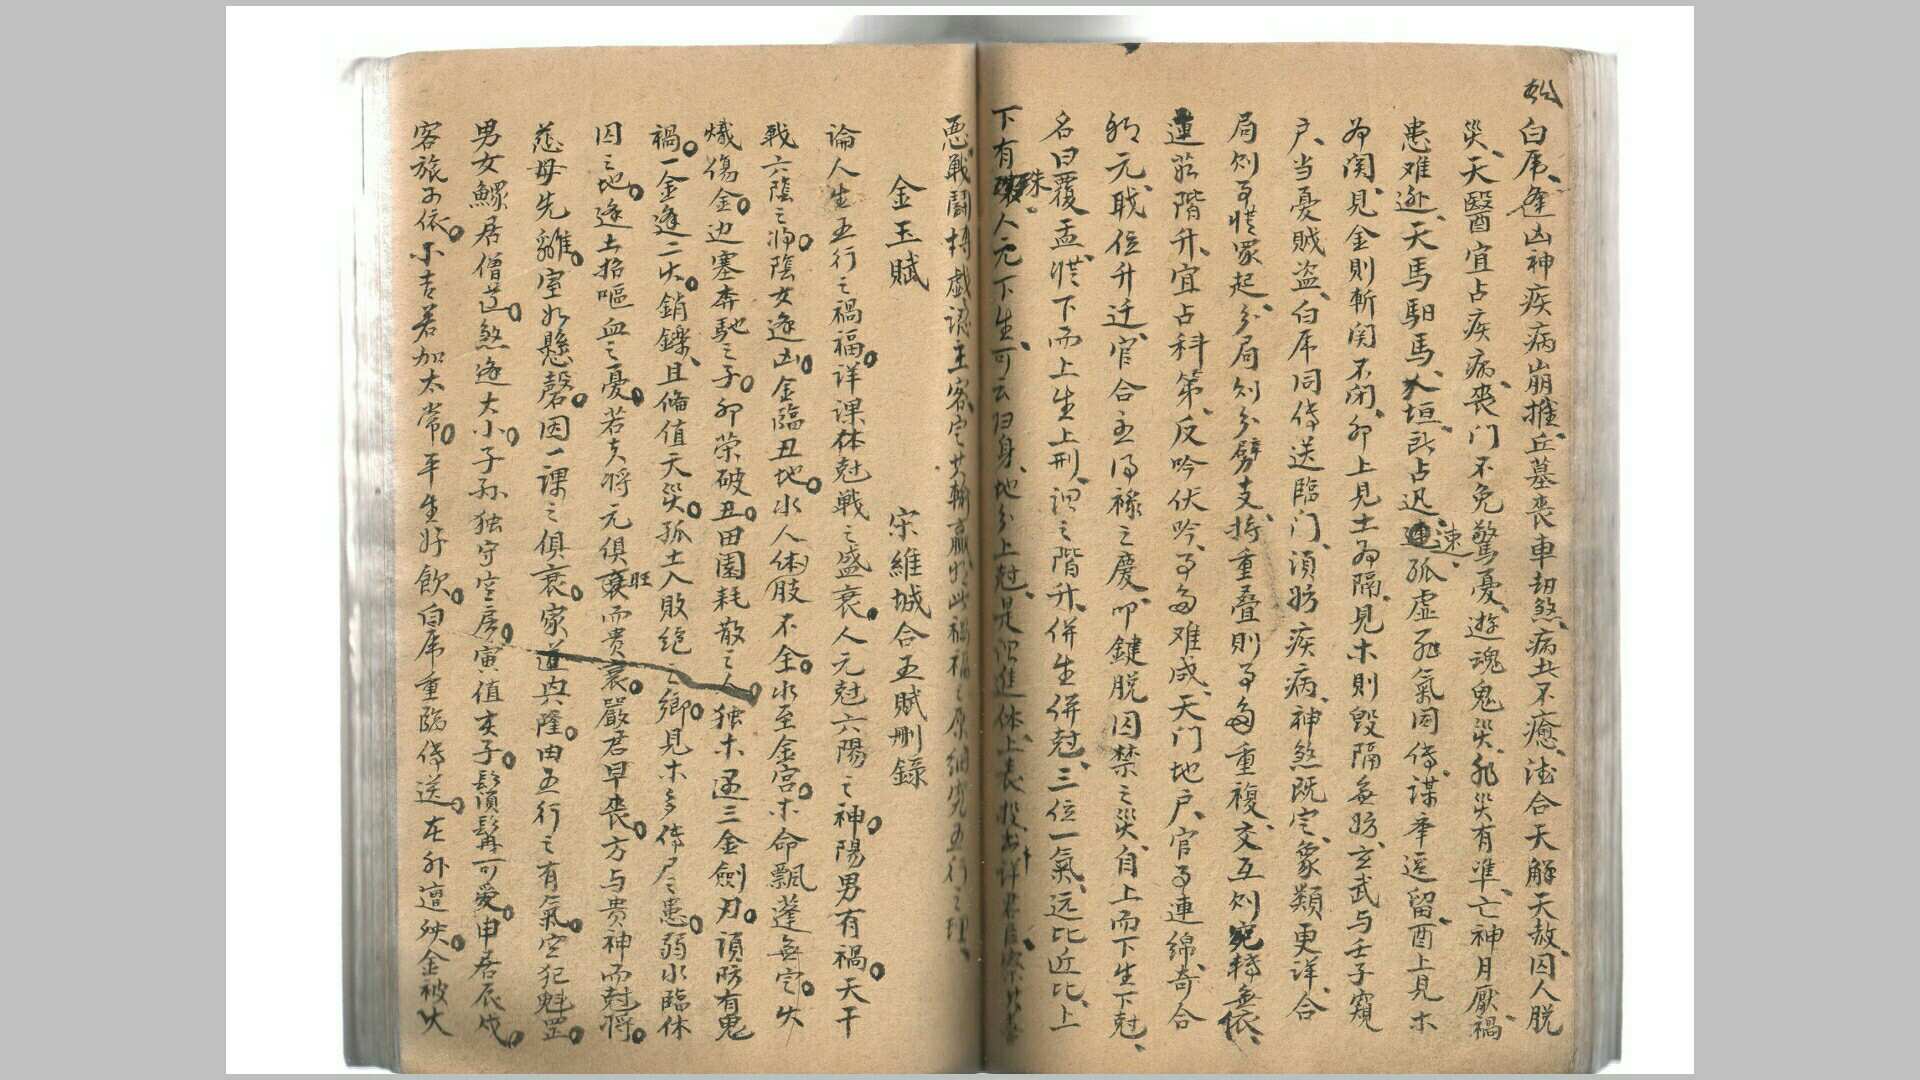 白虎逢凶神疾病崩摧丘墓喪車劫煞病北不癒德合天解天赦囚人脱
災天醫宜占疾病喪门不免驚憂遊魂鬼災飛災有準亡神月厭禍
患难逃天馬馹馬垣訟占迅速孤虚死氣同傳謀牽遲留酉上見木
為関見金則斬関不闭卯上見土為隔見木則毁隔無妨玄武与壬子窺
户当憂賊盗白虎同傳送臨门須妨疾病神煞既定象類更详合
局则事從众起分局则分劈支持重叠則事多重複交互则宛轉無依
蓮茹階升宜占科第反吟伏吟事多难成天门地户官事連綿奇合
元戝位升迁官合主得禄之慶叩鍵脱囚禁之災自上而下生下尅
名曰覆盂從下而上生上刑谓之階升併生併尅三位一氣远比近比上
下有殊人元下生可云归身地分上尅是谓進体上
惡戰鬪博戯認主客定其輸赢此禍福之原細究五行之理
金玉賦 宋維城合玉賦删録
論人生五行之禍福详課体尅戰之盛衰人元尅六陽之神陽男有禍天干
戰六陰之將陰女逢凶金臨丑地水人体肢不全水至金宫木命飄蓬無定火
熾傷金边塞奔馳之子卯荣破丑田園耗散之人独木遇三金劍刃須防有鬼
禍一金逢二火銷鑠且脩值天災孤土入敗絶之鄉見木多傳尸之患弱水臨休
囚之地逢土招嘔血之憂若夫將元俱旺而贵衰嚴君早喪方与贵神而尅將
慈母先離室如懸磬因一課之俱衰家道興隆由五行之有氣空犯魁罡
男女鰥居僧道煞逢大小子孙独守空房寅值亥子鬚髯可愛申居辰戌
客旅子依不吉若加太常平生好飲白虎重臨傳送在外遭殃金被火